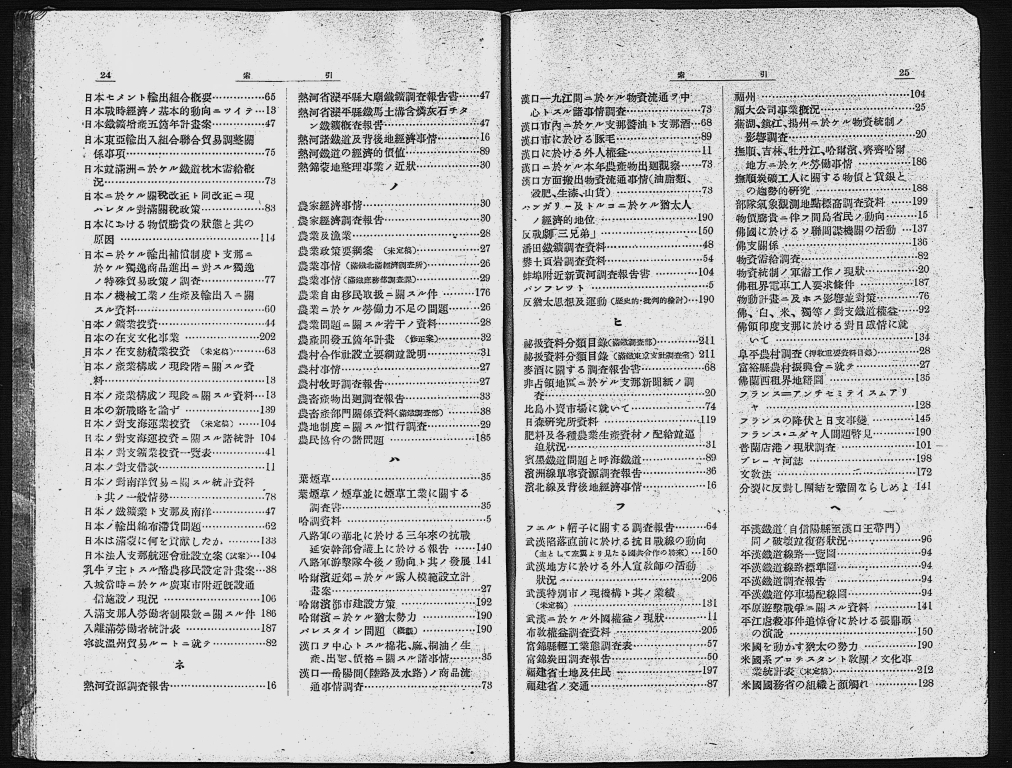 24
索 引
日本セメント輸出組合概要 65
日本戰時經濟ノ基本的動向ニツイテ 13
日本鐵鑛增產五箇年計畫案 47
日本東亞輸出入組合聯合貿易調整關
係事項 75
日本竝滿洲ニ於ケル鐵道枕木需給槪
況 73
日本ニ於ケル關稅改正ト同改正ニ現
ハレタル對滿關稅政策 83
日本における物價騰貴の狀態と其の
原因 114
日本ニ於ケル輸出補償制度ト支那ニ
於ケル獨逸商品進出ニ對スル獨逸
ノ特殊貿易政策ノ調査 77
日本ノ機械工業ノ生產及輸出入ニ關
スル資料 60
日本ノ鑛業投資 44
日本の在支文化事業 202
日本ノ在支紡績業投資 (未定稿) 63
日本ノ產業構成ノ現段階ニ關スル資
料 13
日本ノ產業構成ノ現段ニ關スル資料 13
日本の新戰略を論ず 139
日本ノ對支海運業投資 (未定稿) 104
日本ノ對支海運投資ニ關スル諸統計 104
日本ノ對支鑛業投資一覽表 41
日本ノ對支借款 11
日本ノ對南洋貿易ニ關スル統計資料
ト其ノ一般情勢 78
日本ノ鐵鑛業ト支那及南洋 47
日本ノ輸出綿布滯貨問題 62
日本は滿蒙に何を貢獻したか 133
日本法人支那航運會社設立案(試案) 104
乳牛ヲ主トスル酪農移民設定計畫案 38
入城當時ニ於ケル廣東市附近旣設通
信施設ノ現況 106
入滿支那人勞働者制限竝ニ關スル件 186
入離滿勞働者統計表 187
寧波溫州貿易ルートニ就テ 82
ネ
熱河資源調査報告 16
熱河省灤平縣大廟鐵鑛調査報告書 47
熱河省灤平縣鐵馬土溝含燐灰石チタ
ン鐵鑛槪査報告 47
熱河諸鐵道及背後地經濟事情 16
熱河鐵道の經濟的價値 89
熱錦蒙地整理事業ノ近狀 30
ノ
農家經濟事情 30
農家經濟調査報告 30
農業及漁業 28
農業政策要綱案 (未定稿) 27
農業事情(滿鐵北滿經濟調査所) 26
農業事情(滿鐵庶務部調査課) 29
農業自由移民取扱ニ關スル件 176
農業ニ於ケル勞働力不足の問題 26
農業問題ニ關スル若干ノ資料 28
農產開發五箇年計畫 (修正案) 32
農村合作社設立要綱竝說明 31
農村事情 27
農村牧野調査報告 27
農畜產物出廻調査報告 33
農畜產部門關係資料(滿鐵調査部) 38
農地制度ニ關スル慣行調査 29
農民協會の諸問題 185
ハ
葉煙草 35
葉煙草ノ煙草並に煙草工業に關する
調査書 35
哈調資料 5
八路軍の華北に於ける三年來の抗戰
延安幹部會議上に於ける報告 140
八路軍游擊隊今後ノ動向ト其ノ發展 141
哈爾濱近郊ニ於ケル露人模範設立計
畫案 27
哈爾濱都市建設方策 192
哈爾濱ニ於ケル猶太勢力 190
パレスタイン問題 (槪觀) 190
漢口ヲ中心トスル棉花、麻、桐油ノ生
產、出𢌞、價格ニ關スル諸事情 35
漢口ー番陽間(陸路及水路)ノ商品流
通事情調査 73
索 引
25
漢口—九江間ニ於ケル物資流通ヲ中
心トスル諸事情調査 73
漢口市內ニ於ケル支那醬油ト支那酒 68
漢口市に於ける豚毛 89
漢口に於ける外人權益 11
漢口ニ於ケル本年農產物出廻觀察 73
漢口方面搬出物資流通事情(油脂類、
穀肥、生漆、山貨) 73
ハンガリー及トルコニ於ケル猶太人
ノ經濟的地位 190
反戰劇「三兄弟」 150
潘田鐵鑛調査資料 48
礬土頁岩調査資料 54
蚌埠附近新黃河調査報告書 104
パンフレット 5
反猶太思想及運動 (歷史的・批判的檢討) 190
ヒ
祕扱資料分類目錄(滿鐵調査部) 211
祕扱資料分類目錄(滿鐵東京支社調査室) 211
麥酒に關する調査報告書 68
非占領地區ニ於ケル支那新聞紙ノ調
査 20
比島小資市場に就いて 74
日森硏究所資料 119
肥料及各種農業生產資材ノ配給竝運
迫狀況 31
賓黑鐵道問題と呼海鐵道 89
濱洲線單專資源調査報告 36
濱北線及背後地經濟事情 16
フ
フエルト帽子に關する調査報告 64
武漢陷落直前に於ける抗日戰線の動向
(主として左翼より見たる國共合作の將來) 150
武漢地方に於ける外人宣敎師の活動
狀況 206
武漢特別市ノ現機構ト其ノ業績
(未定稿) 131
武漢ニ於ケル外國權益ノ現狀 11
布敎權益調査資料 205
富錦縣輕工業態調査表 57
富錦炭田調査報告 50
福建省土地及住民 197
福建省ノ交通 87
福州 104
福大公司事業槪況 25
蕪湖、鎭江、揚州ニ於ケル物資統制ノ
影響調査 20
撫順、吉林、牡丹江、哈爾濱、齊齊哈爾
地方ニ於ケル勞働事情 186
撫順炭礦工人に關する物價と賃銀と
の趨勢的硏究 188
部隊氣象觀測地點標高調査資料 199
物價騰貴ニ伴フ間島省民ノ動向 15
佛國に於ける對聯間諜機關の活動 137
佛支關係 136
物資需給調査 82
物資統制ノ軍需工作ノ現狀 20
佛租界電車工人要求條件 187
物動計畫ニ及ホス影響並對策 76
佛、白、米、獨等ノ對支鐵道權益 92
佛領印度支那に於ける對日感情に就
いて 134
阜平農村調査(押收重要資料目錄) 28
富裕縣農村振興會ニ就テ 27
佛蘭西租界地籍圖 135
フランス＝アンチセミテイスムアリ
ヤ 128
フランスの降伏と日支事變 145
フランス・ユダヤ人問題瞥見 190
普蘭店港ノ現狀調査 101
ブレーヤ河誌 198
文敎法 172
分裂に反對し團結を鞏固ならしめよ 141
ヘ
平漢鐵道(自信陽縣至漢口王帶門)
同ノ破壞竝復舊狀況 96
平漢鐵道線路一覽圖 94
平漢鐵道線路標準圖 94
平漢鐵道調査報告 94
平漢鐵道停車場配線圖 94
平原遊擊戰爭ニ關スル資料 141
平江虐殺事件追悼會に於ける張鼎丞
の演說 150
米國を動かす猶太の勢力 190
米國系プロテスタント敎團ノ文化事
業統計表(未定稿) 212
米國國務省の組織と顏觸れ 128